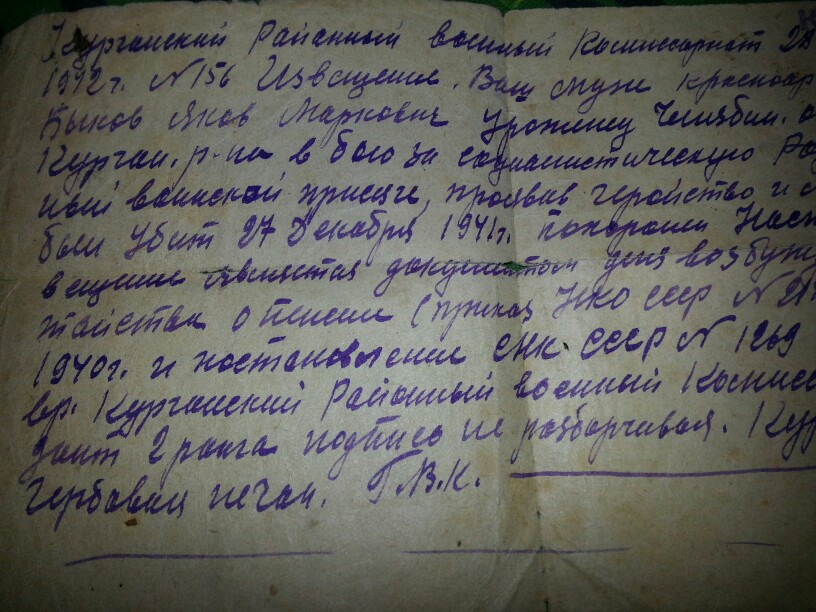 Курганский Районный военный Комиссариат 2
1942г. N 156 Извещение. Ваш муж красноар
Быков Яков Маркович Уроженец Челябин. о
Курган. р-на в бою за социалистическую Ро
ный воинской присяге, проявив геройство и м
был Убит 27 Декабря 1941г. похоронен Наст
вещение является документом для возбуж
тайства о пенсии (приказ НКО СССР N 2
1940г. и постановление СНК СССР N 1269
вр. Курганский Районный военный Комисс
дант 2 ранга подпись не разборчивая. Кур
Гербовая печать. Г.В.К.